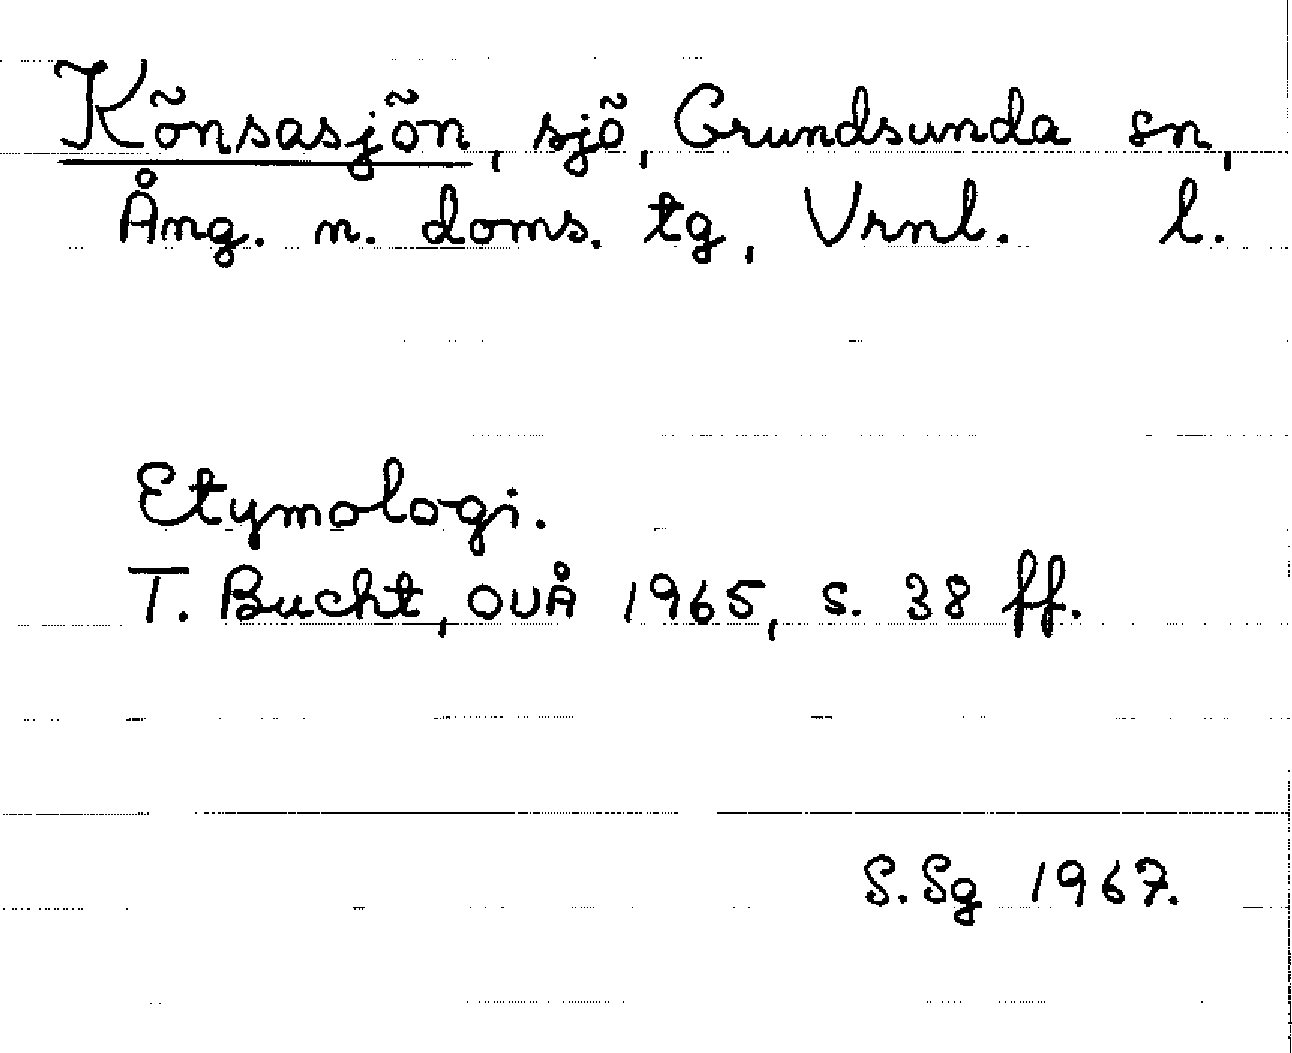 Könsasjön, sjö, Grundsunda sn,
Ång. n. doms. tg, Vrnl. l.
Etymologi.
T. Bucht, OUÅ 1965, s. 38 ff.
S. Sg 1967.